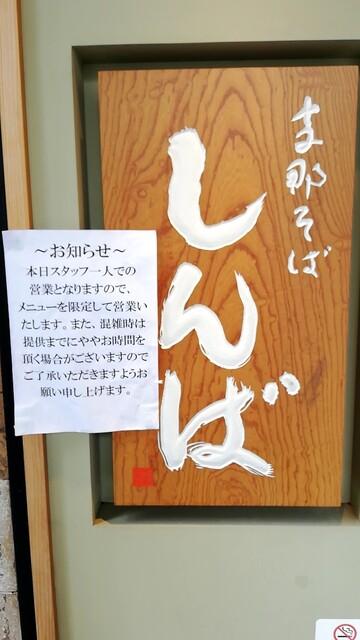 支那そば
しんば
～お知らせ～
本日スタッフ一人での
営業となりますので、
メニューを限定して営業い
たします。また、混雑時は
提供までにややお時間を
頂く場合がございますので
ご了承いただきますようお
願い申し上げます。